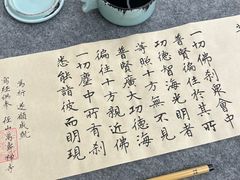 一切佛刹眾會中
普賢徧住於其所
功德智海光明者
等照十方無不見
普賢廣大功德海
徧往十方親近佛
一切塵中所有刹
悉能詣彼而明現
願成就
寫經供奉 徑山萬壽禪寺